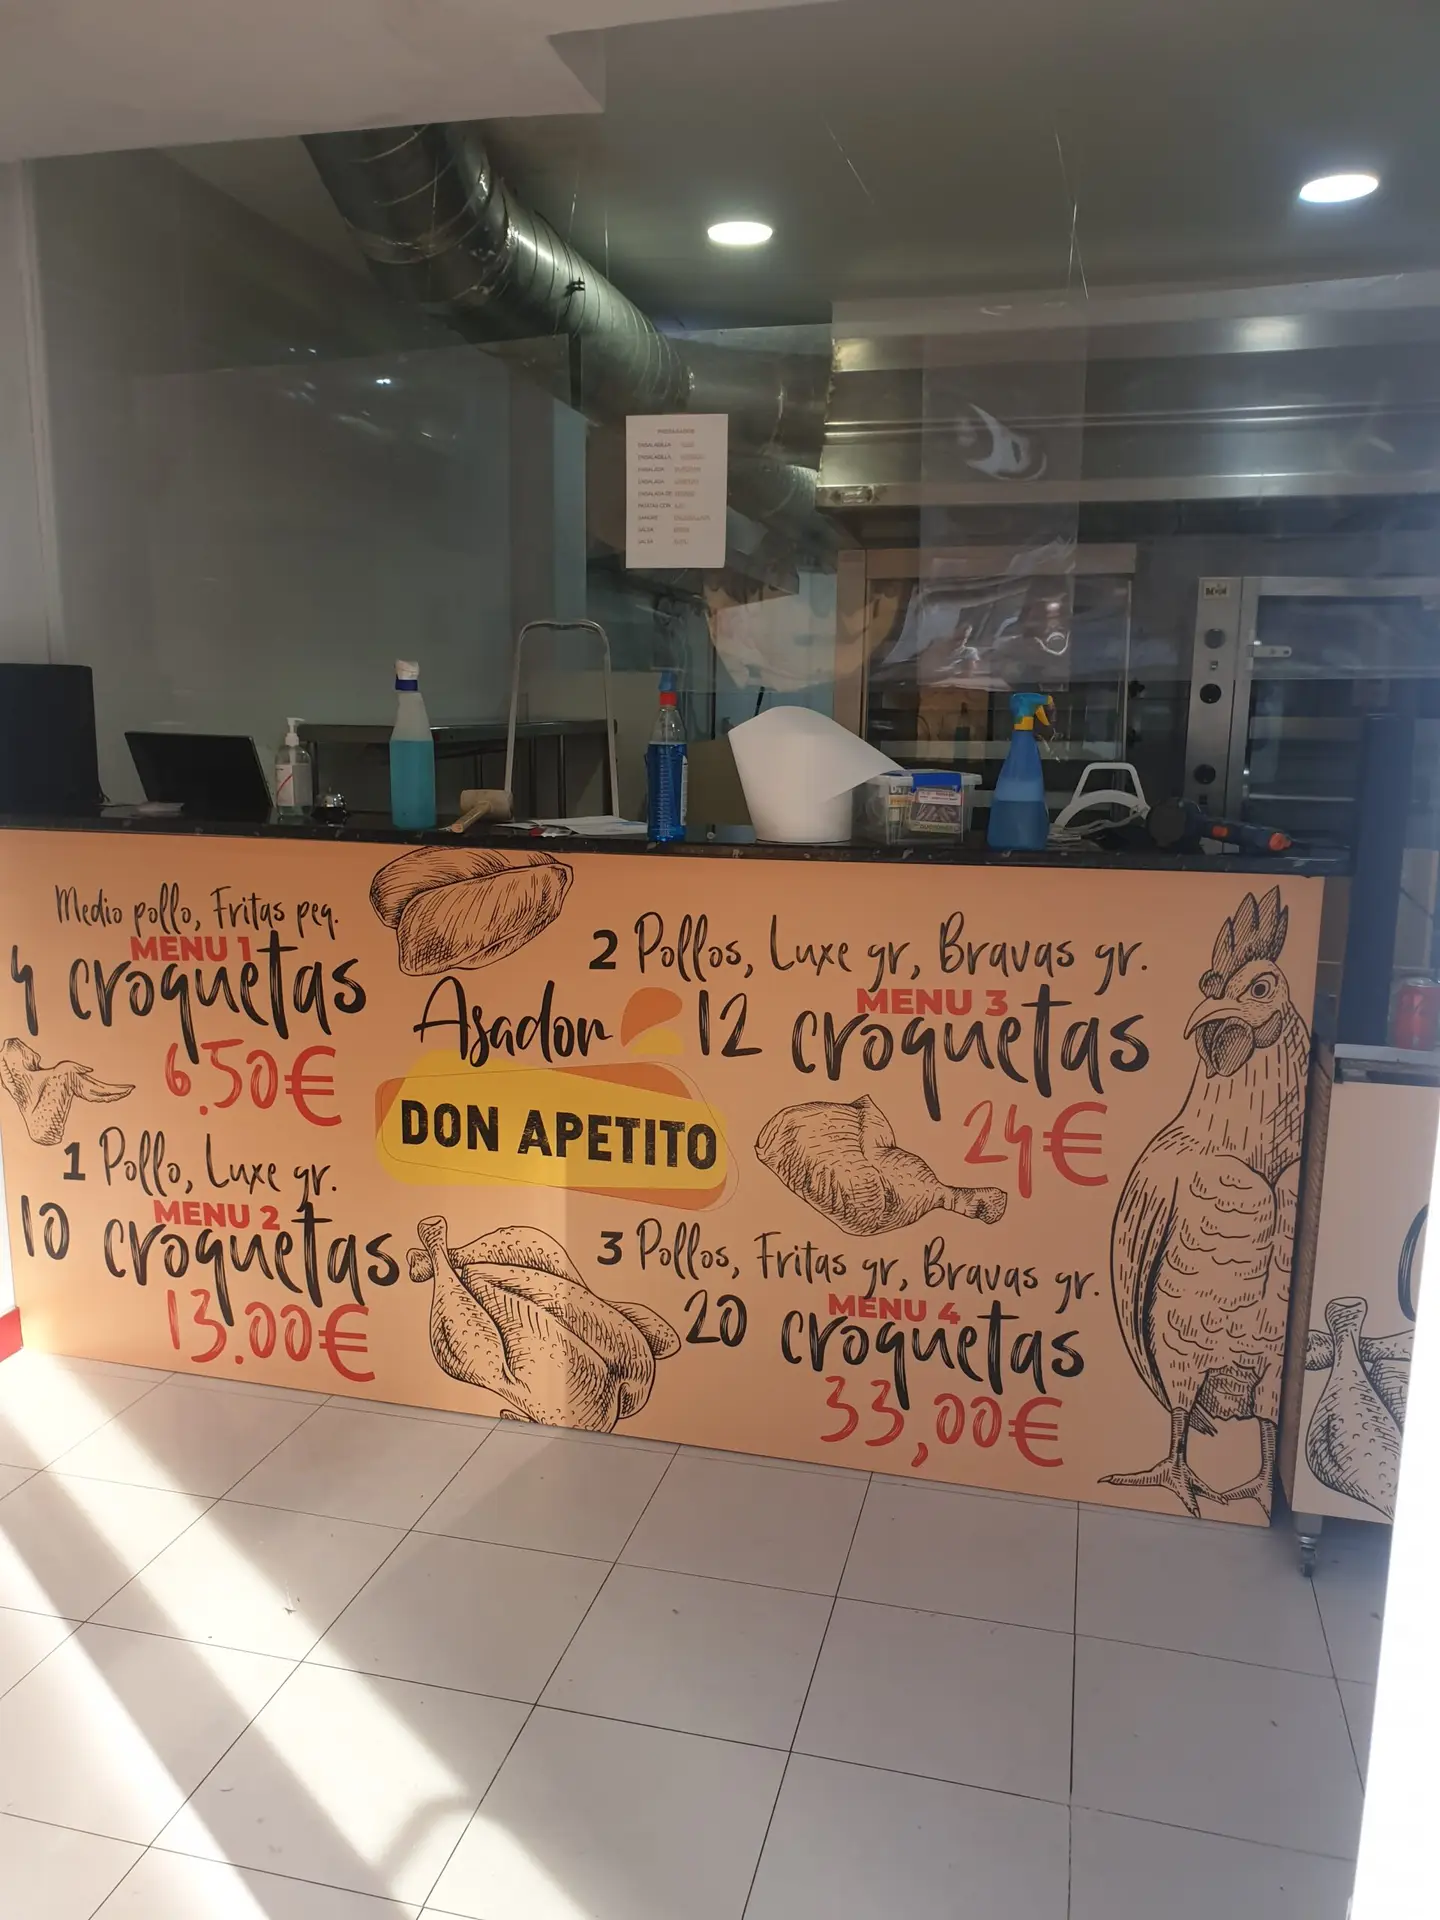 ENSALADILLA
ENSALADILLA
ENSALADA
ENSALADA
ENSALADA DE
PATATAS CON
SALSA
SALSA
Medio pollo, Fritas peq.
MENU 1
4 croquetas
6.50€
1 Pollo, Luxe gr.
MENU 2
10 croquetas
13.00€
Asador
DON APETITO
2 Pollos, Luxe gr, Bravas gr.
MENU 3
12 croquetas
24€
3 Pollos, Fritas gr, Bravas gr.
MENU 4
20 croquetas
33,00€